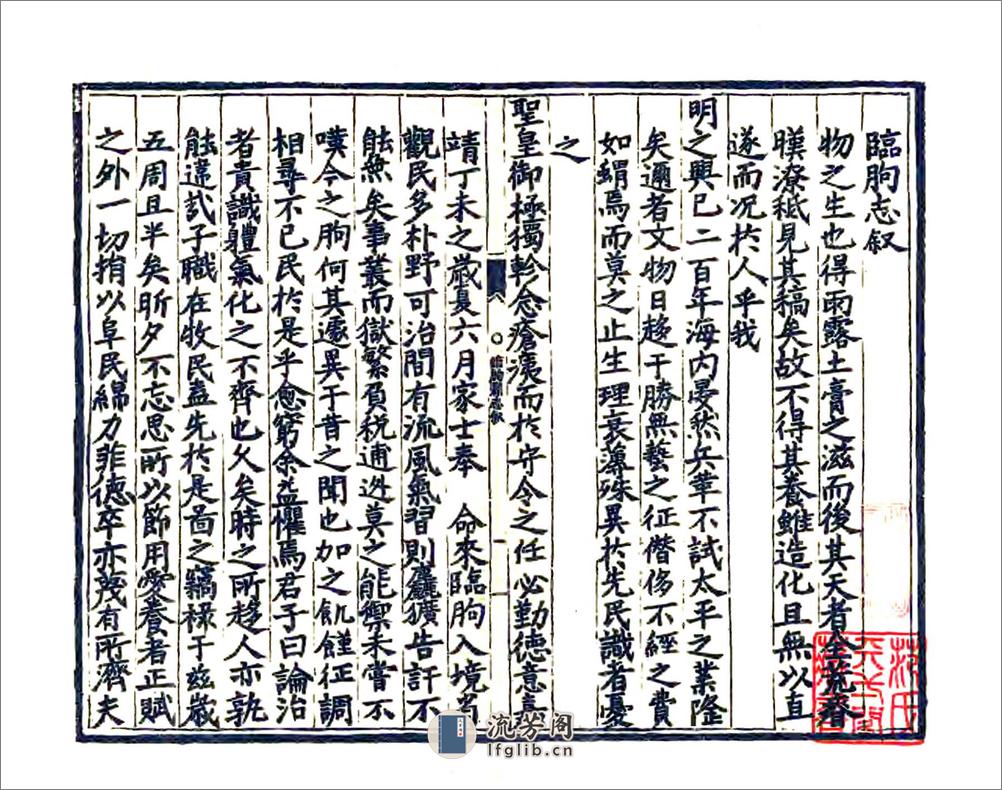 臨朐志叙
物之生也得雨露土膏之滋而後其天者全荒瘠
暵潦秪見其稿矣故不得其養雖造化且無以直
遂而况於人乎我
明之興已二百年海内晏然兵革不試太平之業隆
矣邇者文物日趍于勝無藝之征僭侈不經之費
如蝟焉而莫之止生理衰薄殊異於先民識者憂
之
聖皇御極獨軫念瘡痍而於守令之任必勤德意嘉
靖丁未之歲夏六月家士奉 命來臨朐入境首
觀民多朴野可治間有流風氣習則麤獷告訐不
能無矣事叢而獄繁負税逋迯莫之能禦未嘗不
嘆今之朐何其遽異于昔之聞也加之飢饉征調
相尋不已民於是乎愈窮余益懼焉君子曰論治
者貴識體氣化之不齊也久矣時之所趍人亦孰
能違式子職在牧民盍先於是啚之竊禄于兹歲
五周且半矣昕夕不忘思所以節用愛養者正賦
之外一切捐以阜民綿力菲德卒亦蔑有所濟夫
流芳阁
lfglib.cn